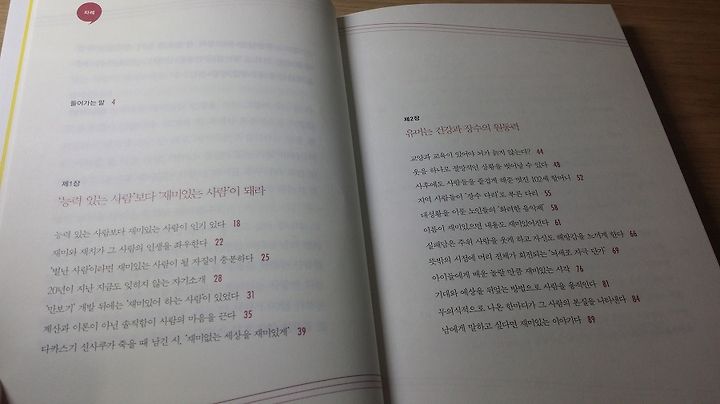 차례
들어가는 말 4
제1장
'능력 있는 사람'보다 '재미있는 사람'이 돼라
능력 있는 사람보다 재미있는 사람이 인기 있다 18
재미와 재치가 그 사람의 인생을 좌우한다 22
'별난 사람'이라면 재미있는 사람이 될 자질이 충분하다 25
20년이 지난 지금도 잊히지 않는 자기소개 28
'만보기' 개발 뒤에는 '재미있어 하는 사람'이 있었다 31
계산과 이론이 아닌 솔직함이 사람의 마음을 끈다 35
다카스기 신사쿠가 죽을 때 남긴 시, '재미없는 세상을 재미있게' 39
제2장
유머는 건강과 장수의 원동력
교양과 교육이 있어야 뇌가 늙지 않는다? 44
웃음 하나로 절망적인 상황을 벗어날 수 있다 48
사후에도 사람들을 즐겁게 해준 멋진 102세 할머니 52
지역 사람들이 '장수 다리'로 부른 다리 55
대성황을 이룬 노인들의 '화려한 음악제' 58
이름이 재미있으면 내용도 재미있어진다 61
실패담은 주위 사람을 웃게 하고 자신도 해방감을 느끼게 한다 66
뜻밖의 시점에 머리 전체가 회전되는 '뇌세포 자극 단가' 69
아이들에게 배운 놀랄 만큼 재미있는 시각 76
기대와 예상을 뒤엎는 방법으로 사람을 움직인다 81
무의식적으로 나온 한마디가 그 사람의 본질을 나타낸다 84
남에게 말하고 싶다면 재미있는 이야기다 89